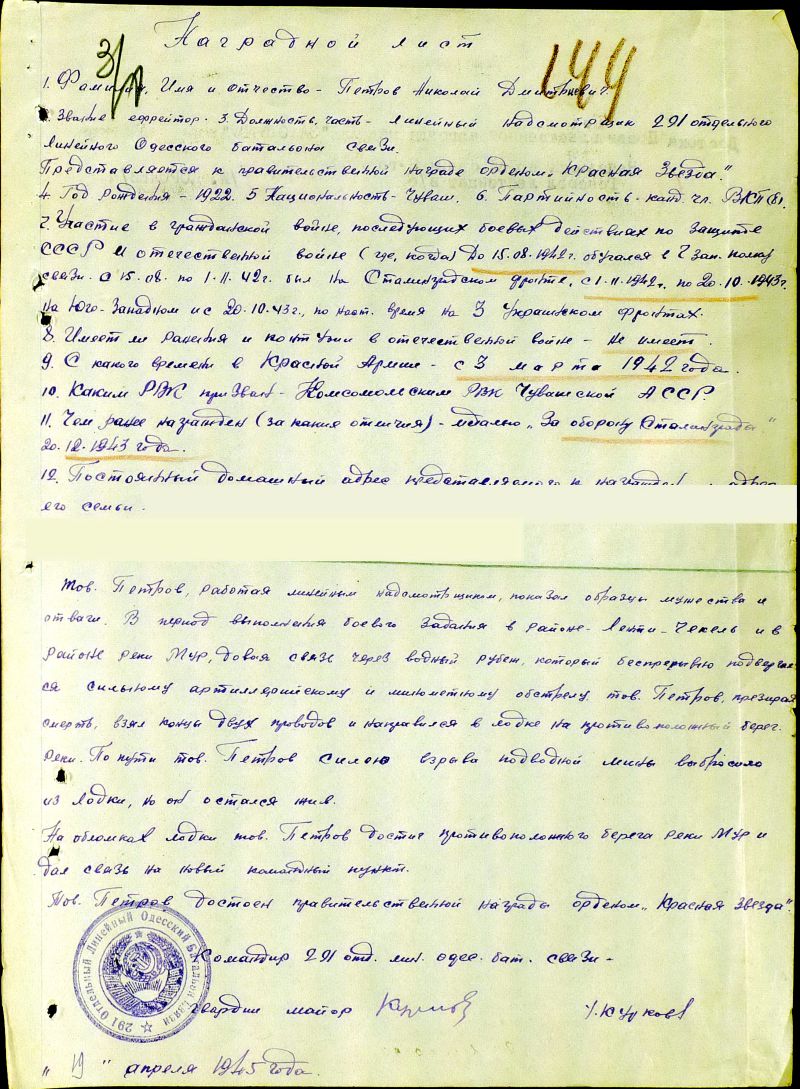 Наградной лист
З/п
144
1. Фамилия, Имя и отчество - Петров Николай Дмитриевич.
2. Звание ефрейтор. 3. Должность, часть - линейный надсмотрщик 291 отдельного
линейного Одесского батальона связи.
Представляется к правительственной награде орденом „Красная Звезда."
4. Год рождения - 1922. 5 Национальность - Чуваш. 6. Партийность - канд. чл. ВКП(б).
7. Участие в гражданской войне, последующих боевых действиях по защите
СССР и отечественной войне (где, когда) До 15.08.1942г. обучался в зап. полку
связи. С 15.08. по 1.11.42г. был на Сталинградском фронте, с 1.11.1942г. по 20.10.1943г.
на Юго-Западном и с 20.10.43г., по наст. время на 3 Украинском фронтах.
8. Имеет ли ранения и контузии в отечественной войне - не имеет.
9. С какого времени в Красной Армии - с 3 марта 1942 года.
10. Каким РВК призван - Комсомольским РВК Чувашской АССР.
11. Чем ранее награжден (за какия отличия) - медалью „За оборону Сталинграда."
20.12.1943 года.
12. Постоянный домашный адрес представляемого к награжден адрес
его семьи.
Тов. Петров, работая линейным надсмотрщиком, показал образцы мужества и
отваги. В период выполнения боевого задания в районе - Ленти-Чекель и в
районе реки Мур, давая связь через водный рубеж, который беспрерывно подвергал-
ся сильному артиллерийскому и минометному обстрелу, тов. Петров, презирая
смерть, взял концы двух проводов и направился в лодке на противоположный берег.
реки. По пути тов. Петров силою взрыва подводной мины выбросило
из лодки, но он остался жив.
На обломках лодки тов. Петров достиг противоположного берега реки Мур и
дал связь на новый командный пункт.
Тов. Петров достоен правительственной награды орденом „Красная Звезда".
Командир 291 отд. лин. одес. бат. связи -
гвардии майор /. Курков
„ 19 " апреля 1945 года.
291 Отдельный Линейный Одесский Батальон Связи